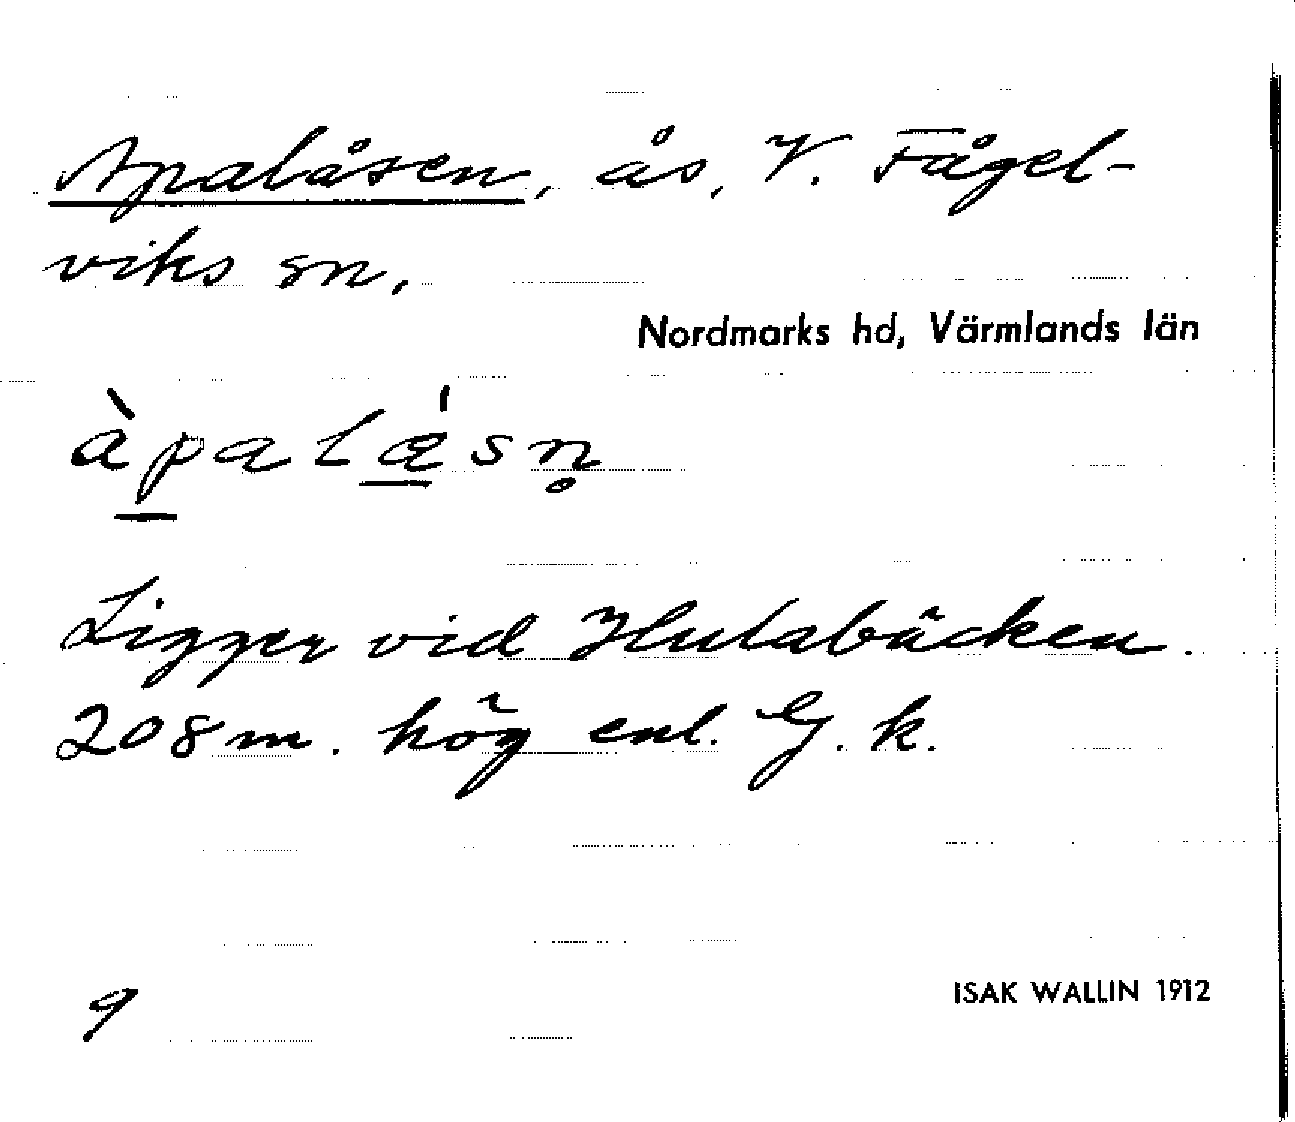 Apalåsen, ås, V. Fågel-
viks sn.
Nordmarks hd, Värmlands län
àpalǽsn̥
Ligger vid Hulabäcken.
208 m. hög enl. G. k.
9
ISAK WALLIN 1912